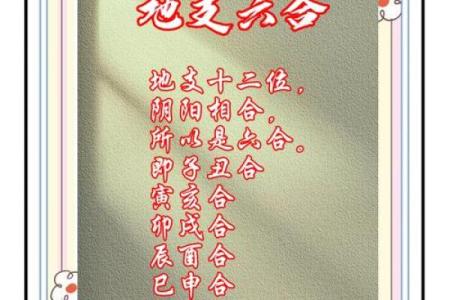 地支六合
地支十二位，
阴阳相合，
所以是六合。
即子丑合
寅亥合
卯戌合
辰酉合
巳申合